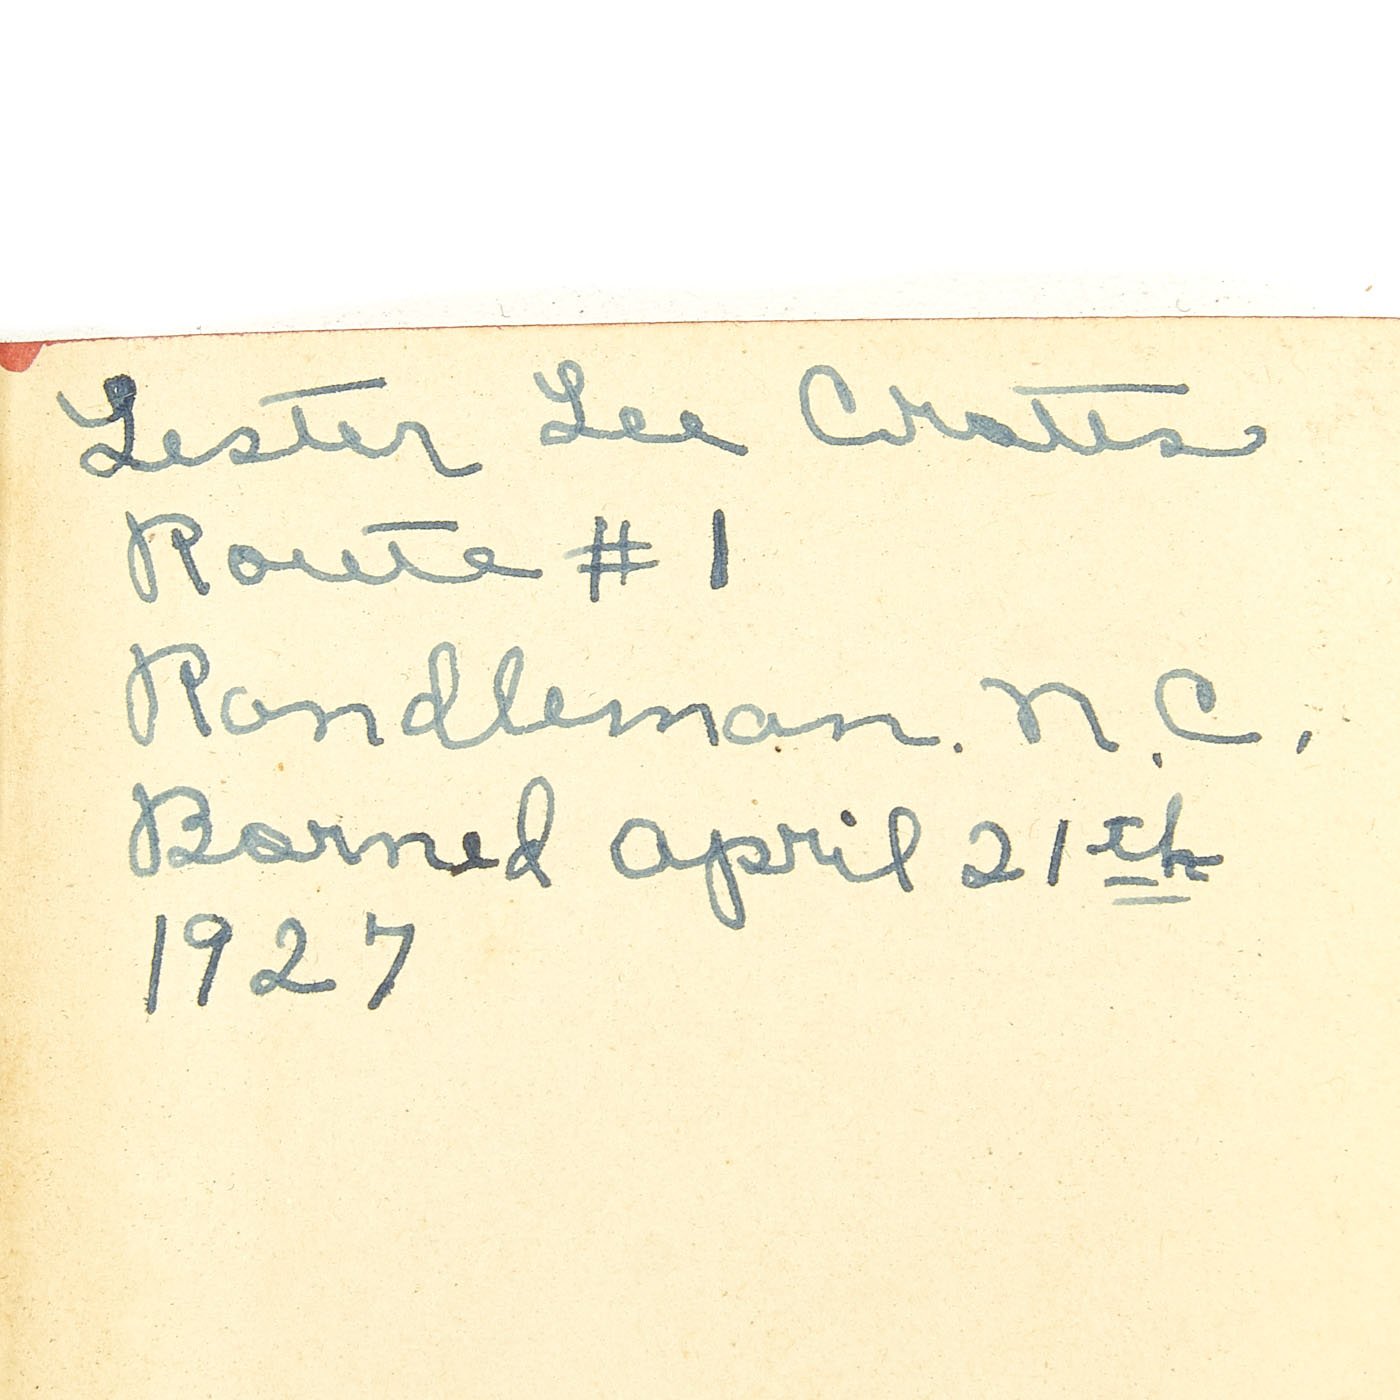 Lester Lee Crotts
Route # 1
Randleman. N.C.
Borned April 21th
1927